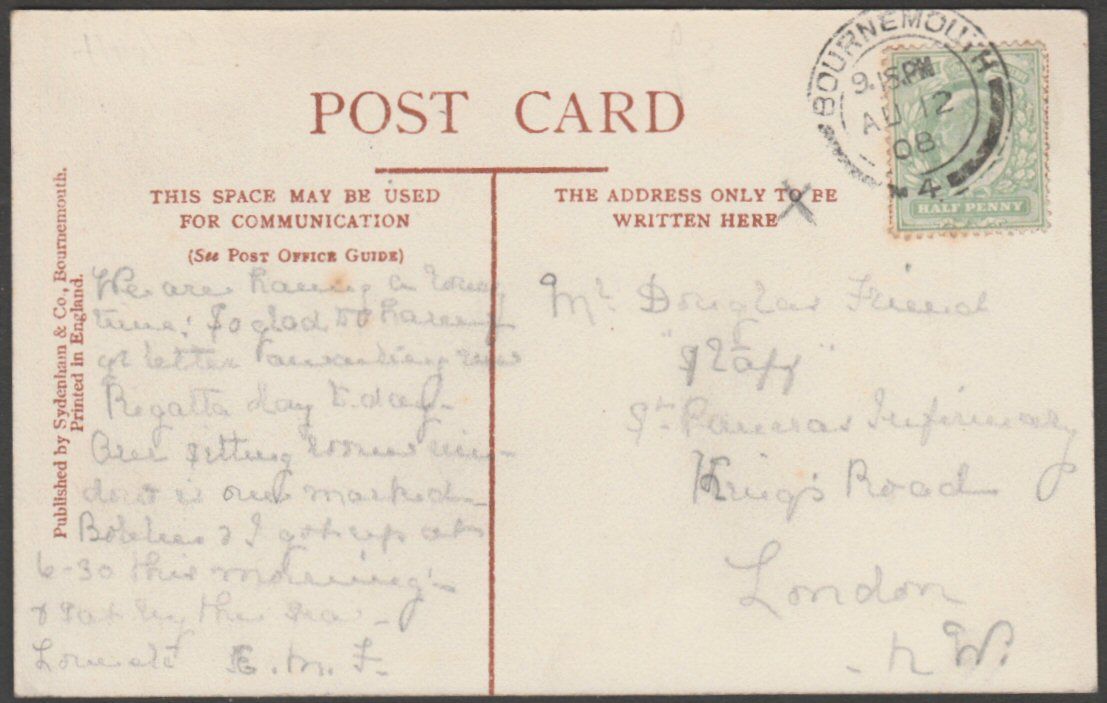 POST CARD
THIS SPACE MAY BE USED
FOR COMMUNICATION
(See POST OFFICE GUIDE)
THE ADDRESS ONLY TO BE
WRITTEN HERE
BOURNEMOUTH
9.15.PM
AU 12
08
4
HALF PENNY
Published by Sydenham & Co., Bournemouth.
Printed in England.
We are having a
time. So glad to have my
letter
Regatta day to day
Our sitting room win-
dow is marked
Bobbies & I got up at
6-30 this morning
& sat by the sea
Love E. M. F.
Mr Douglas Friend
"Staff"
St Pancras Infirmary
King's Road
London
N W.